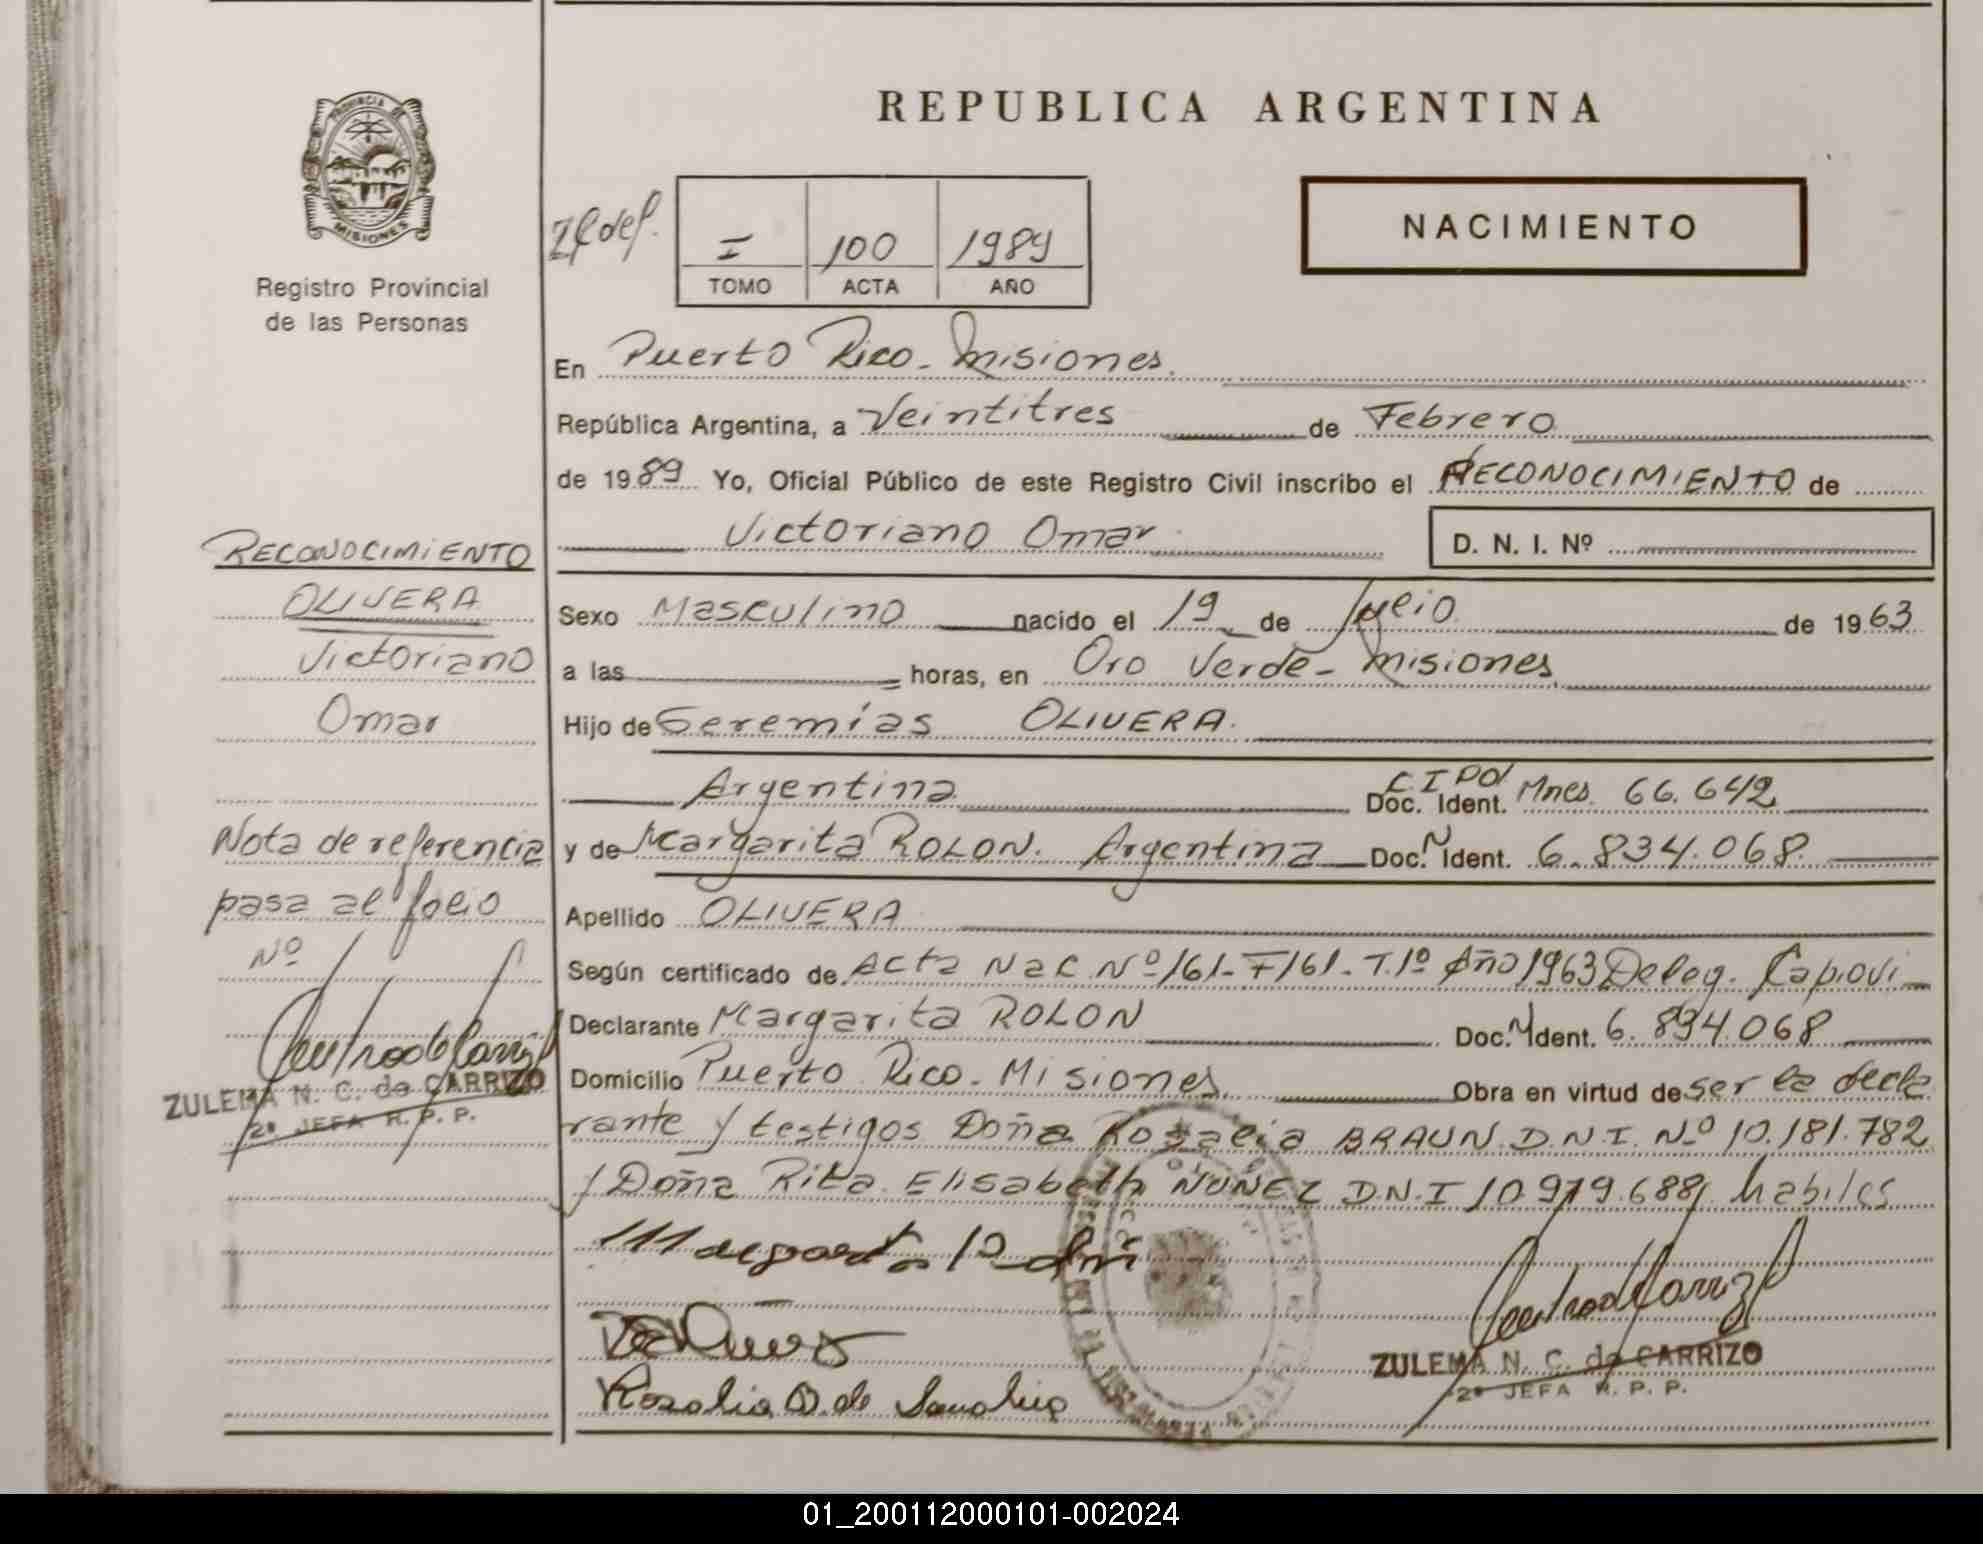 PROVINCIA DE
MISIONES
Registro Provincial
de las Personas
REPUBLICA ARGENTINA
I 100 1989
TOMO ACTA AÑO
NACIMIENTO
En Puerto Rico - Misiones.
República Argentina, a Veintitres de Febrero
de 1989 Yo, Oficial Público de este Registro Civil inscribo el RECONOCIMIENTO de
Victoriano Omar
D. N. I. Nº
Sexo Masculino nacido el 19 de Julio de 1963
a las horas, en Oro Verde - Misiones
Hijo de Geremías OLIVERA.
Argentina C.I POl Doc. Ident. Mnes. 66.642
y de Margarita ROLON. Argentina Doc. N Ident. 6.834.068.
Apellido OLIVERA
Según certificado de Acta Nac Nº 161- F 161- T.1º Año 1963 Deleg. Capiovi
Declarante Margarita ROLON Doc. N Ident. 6.834.068
Domicilio Puerto Rico - Misiones Obra en virtud de ser la decla
rante y testigos Doña Rosalia BRAUN D.N.I. Nº 10.181.782
y Doña Rita Elisabeth NUÑEZ D.N.I 10.979.688, habiles
Rosalia B. de
ZULEMA N. C. de CARRIZO
2ª JEFA R. P. P.
RECONOCIMIENTO
OLIVERA
Victoriano
Omar
Nota de referencia
pasa al folio
Nº
ZULEMA N. C. de CARRIZO
2ª JEFA R. P. P.
01_200112000101-002024